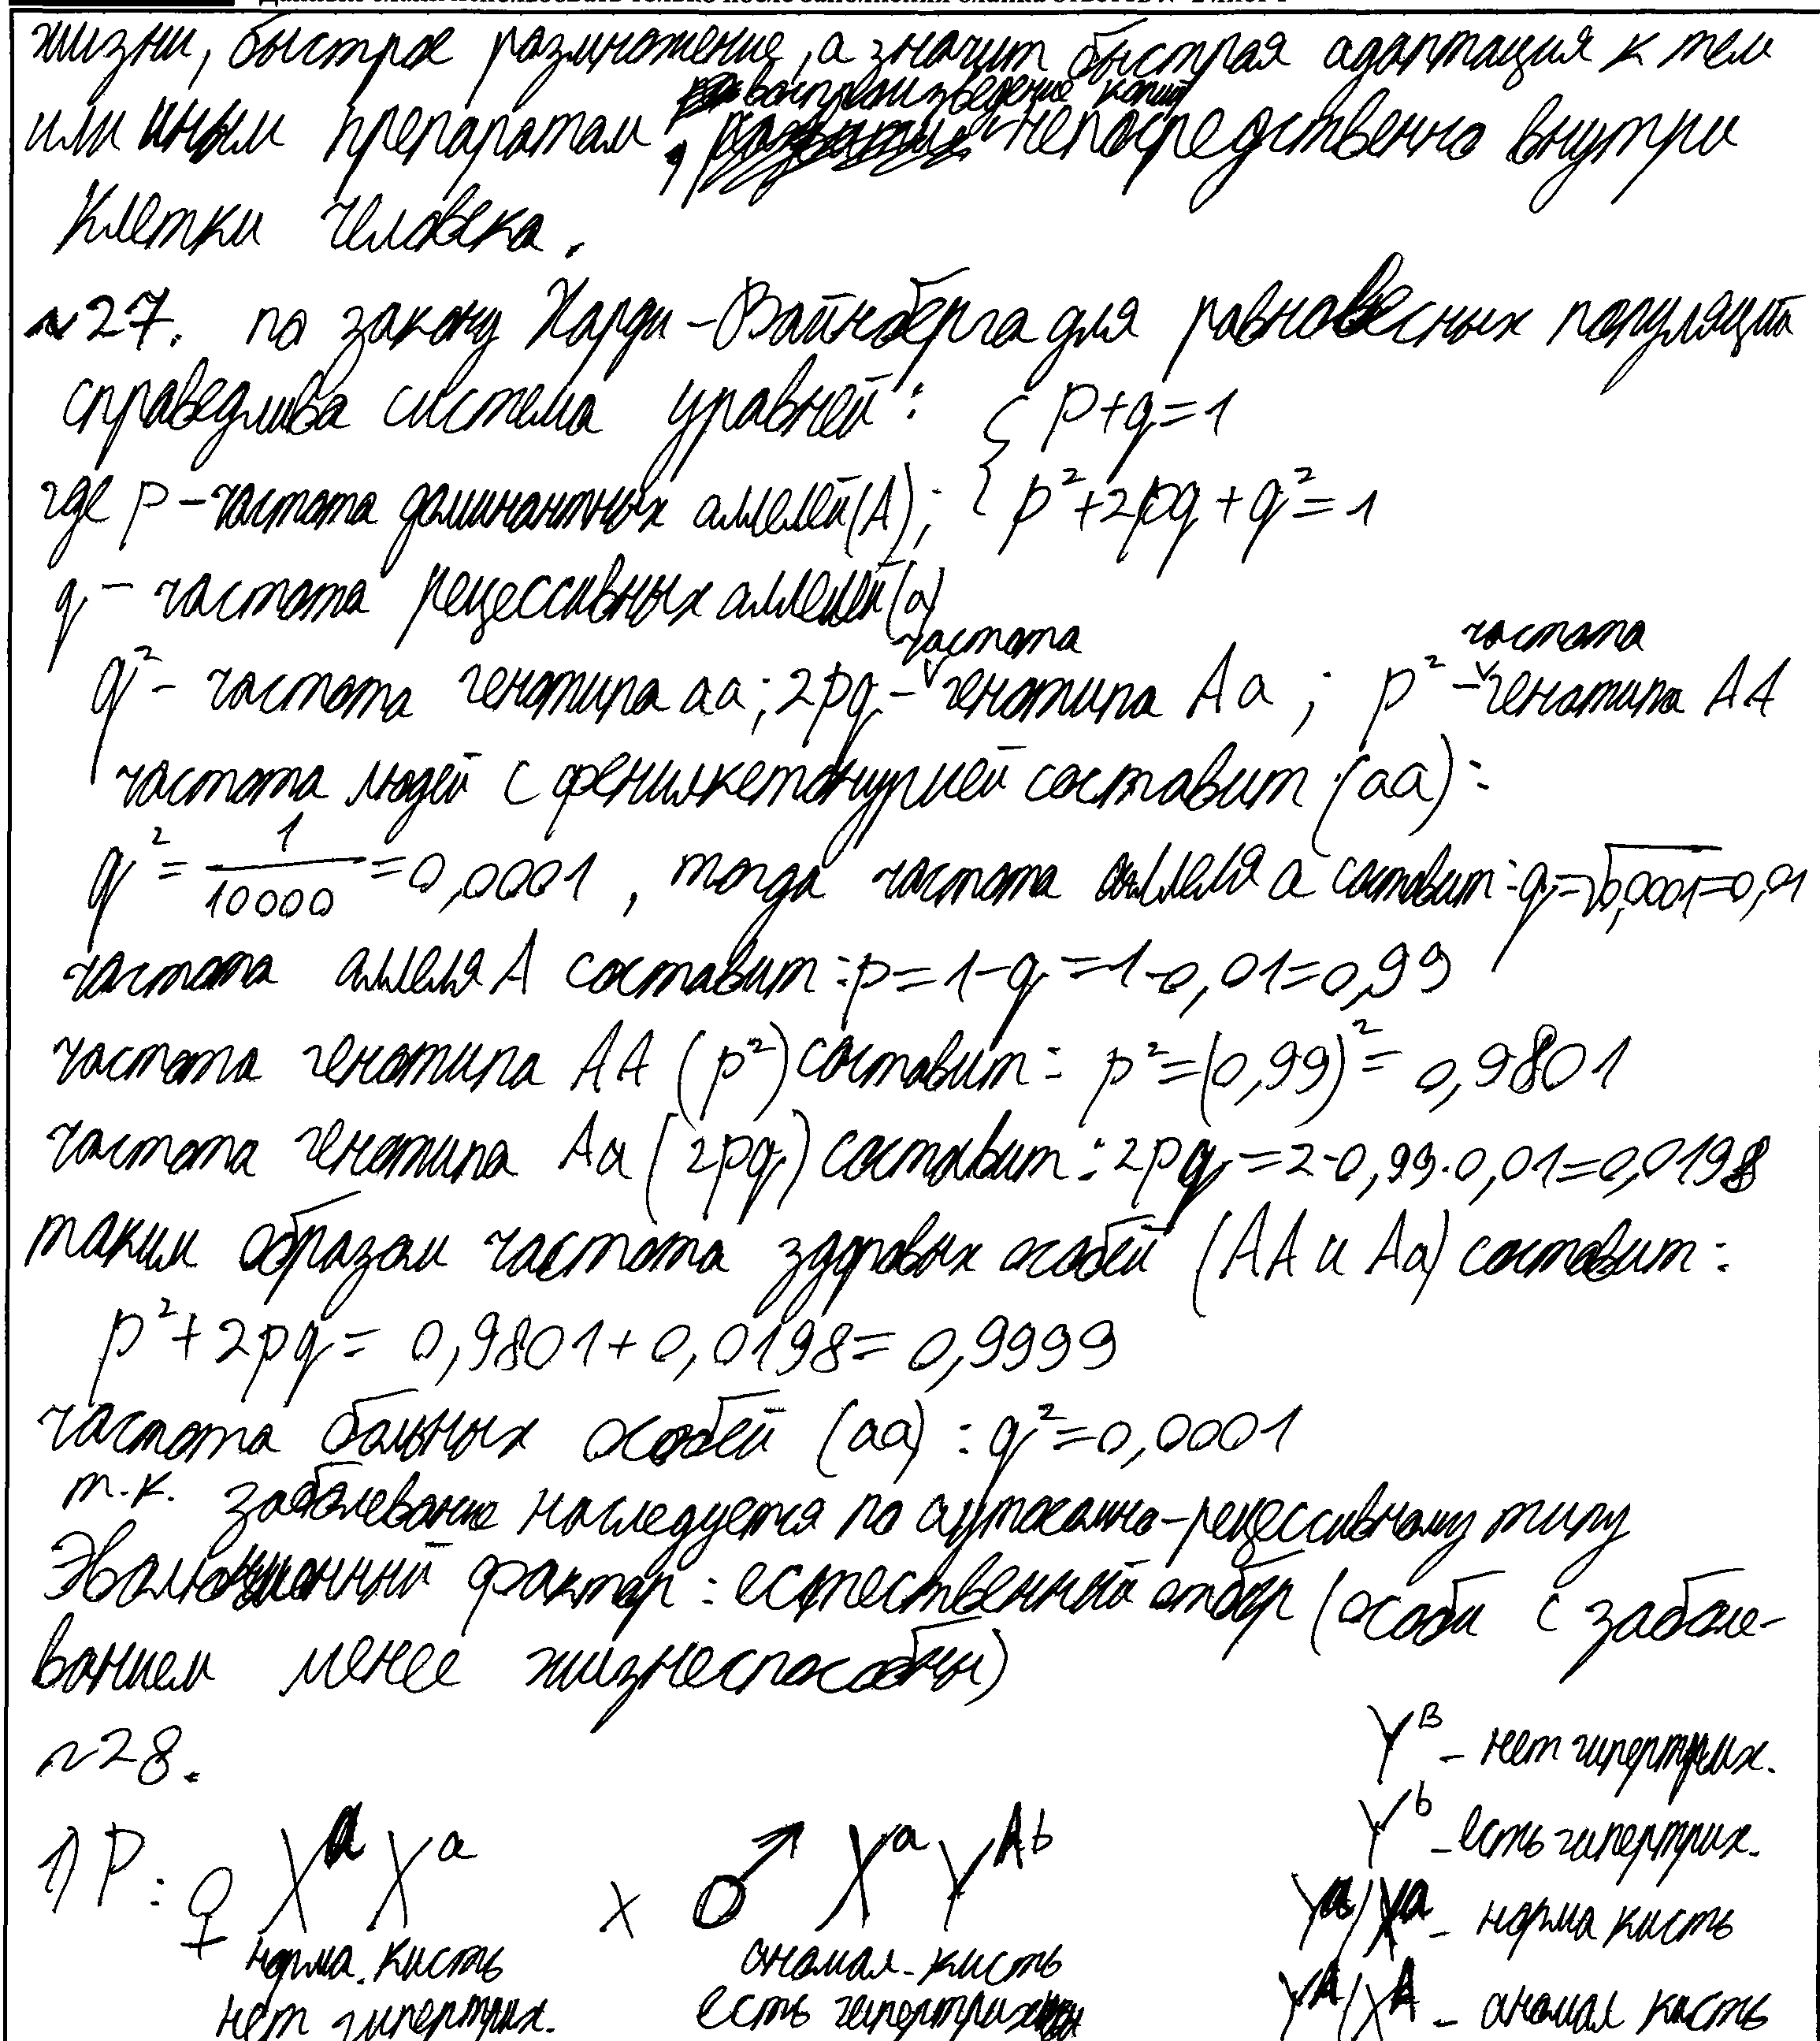 жизни, быстрое размножение, а значит быстрая адаптация к тем
или иным препаратам, воспроизведение копий непосредственно внутри
клетки человека.
№27. по закону Харди-Вайнберга для равновесных популяций
справедлива система уравней: { p+q=1
где p - частота доминантных аллелей(A); { p²+2pq+q²=1
q - частота рецессивных аллелей(a)
q² - частота генотипа aa; 2pq - частота генотипа Aa ; p² - частота генотипа AA
частота людей с фенилкетонурией составит (aa):
q² = 1/10000 = 0,0001 , тогда частота аллеля a составит: q=√0,0001=0,01
частота аллеля A составит: p=1-q=1-0,01=0,99
частота генотипа AA (p²) составит: p²=(0,99)²= 0,9801
частота генотипа Aa (2pq) составит: 2pq=2·0,99·0,01=0,0198
таким образом частота здоровых особей (AA и Aa) составит:
p²+2pq= 0,9801+0,0198= 0,9999
частота больных особей (aa) : q²=0,0001
т.к. заболевание наследуется по аутосомно-рецессивному типу
Эволюционный фактор: естественный отбор (особи с заболе-
ванием менее жизнеспособны)
№28.
Yᴮ - нет гипертрих.
Yᵇ - есть гипертрих.
1) P: ♀ XᵃXᵃ x ♂ XᵃYᴬᵇ
Yᵃ/Xᵃ - норма кисть
норма. кисть аномал. кисть
Yᴬ/Xᴬ - аномал кисть
нет гипертрих. есть гипертрих